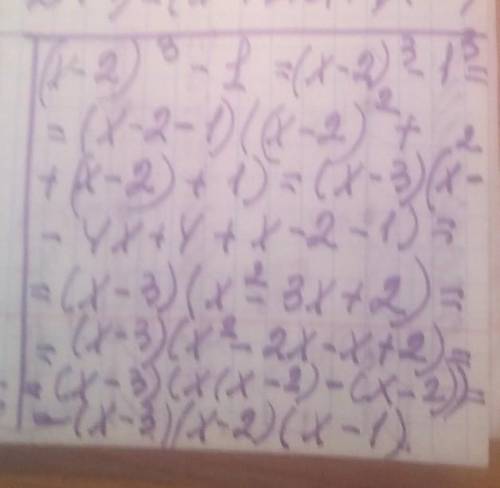 (x-2)³ - 1 = (x-2)³ - 1³ =
= (x-2-1)((x-2)² +
+ (x-2) + 1) = (x-3)(x² -
- 4x+4+x-2-1) =
= (x-3)(x² - 3x+2) =
= (x-3)(x² - 2x-x+2) =
= (x-3)(x(x-2)-(x-2)) =
= (x-3)(x-2)(x-1)